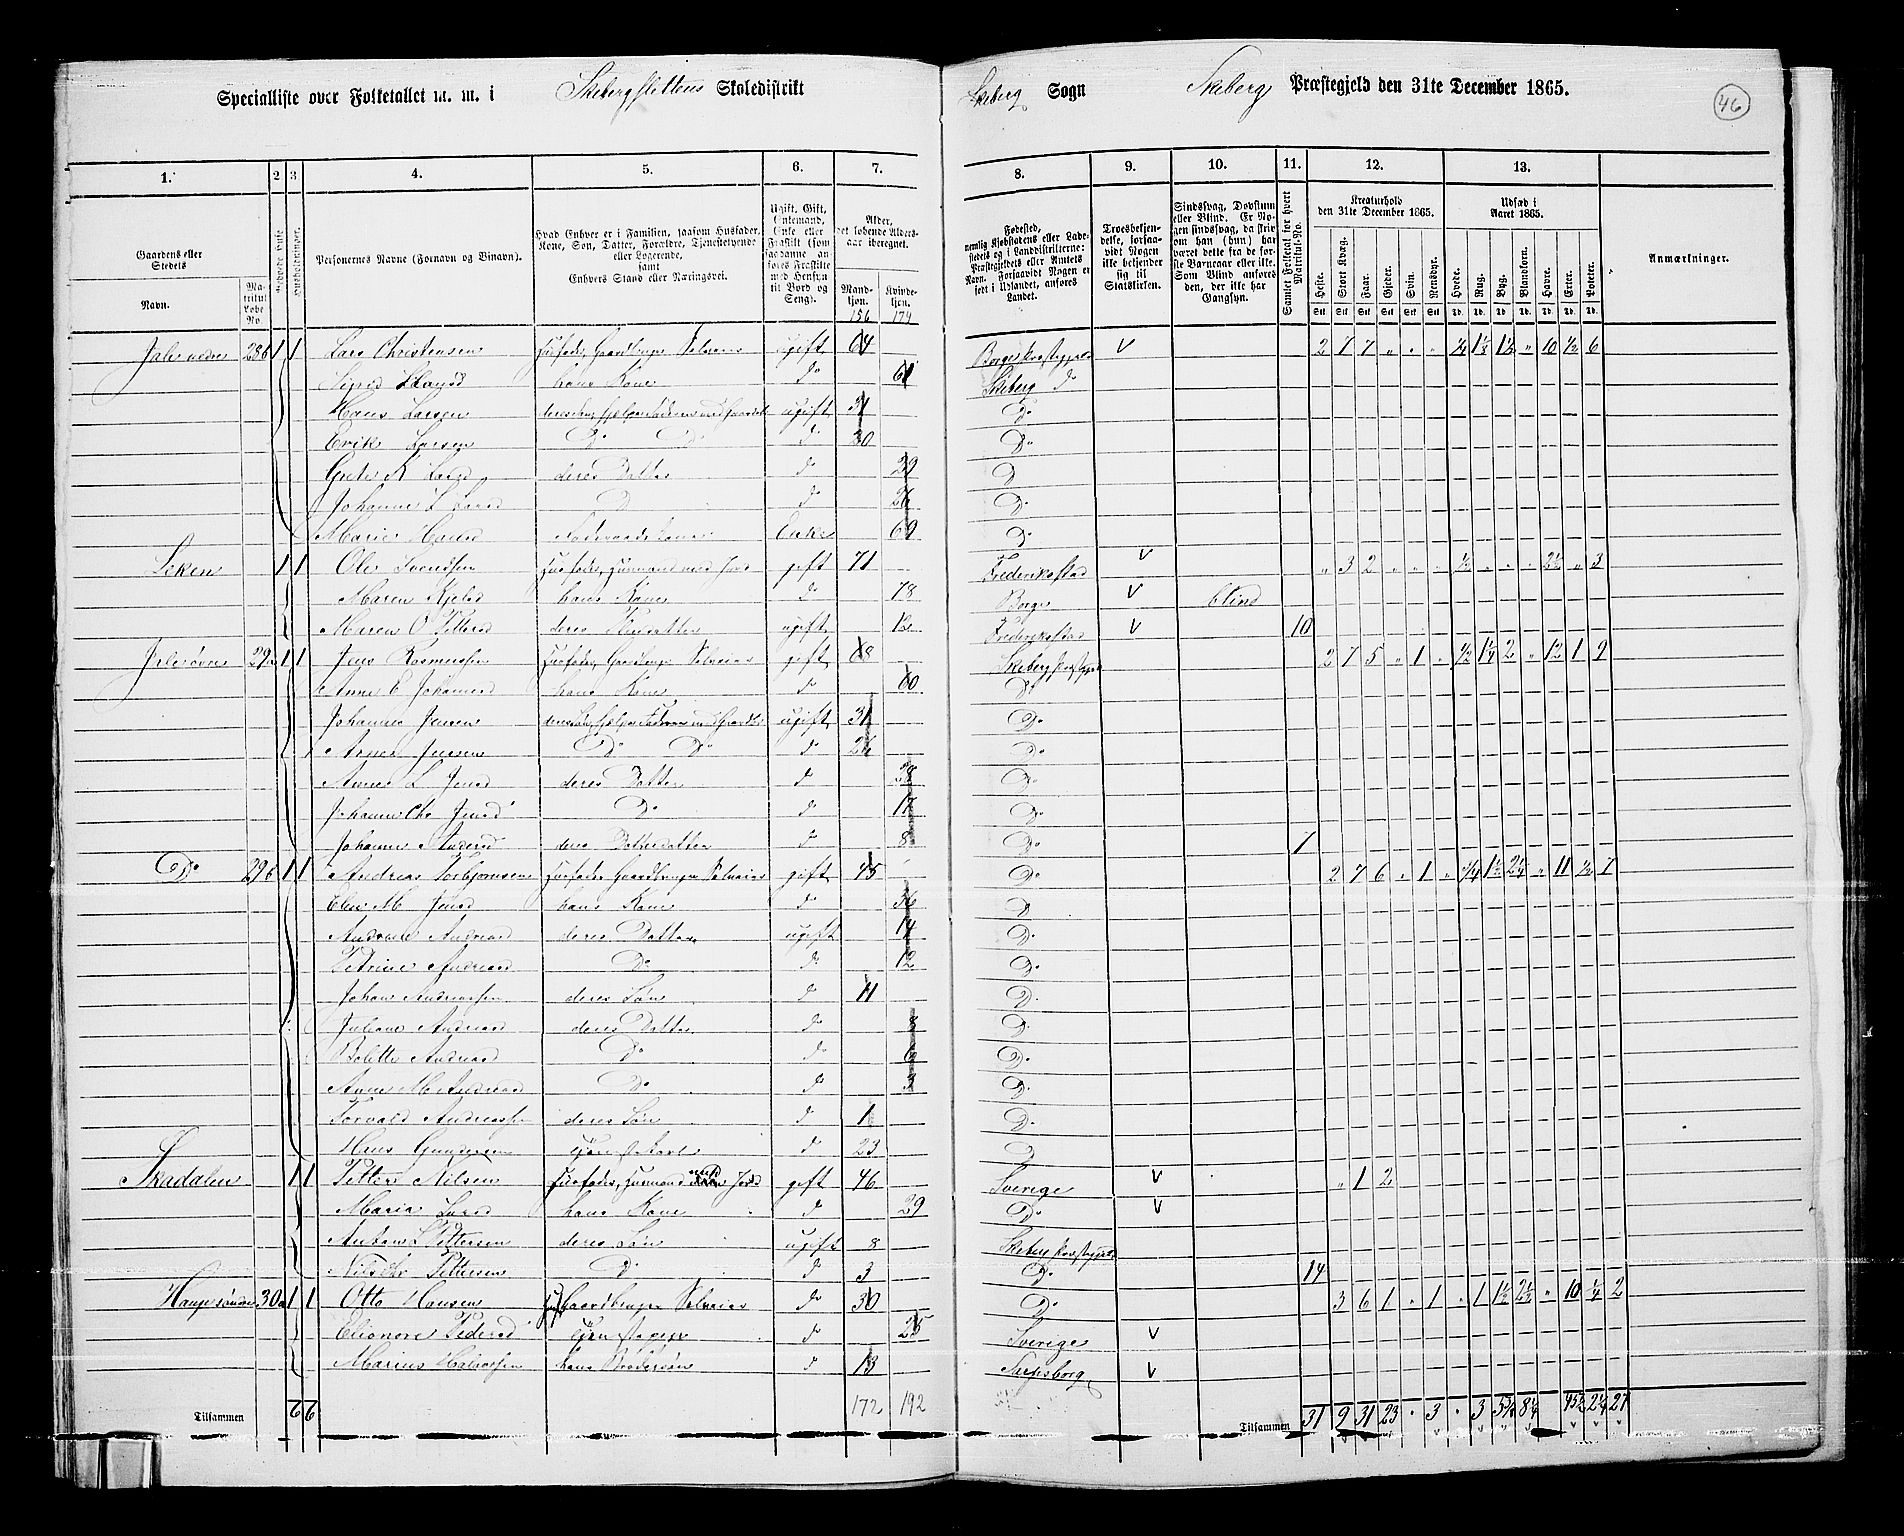 Specialliste over Folketallet m. m. i Skebergslettens Skoledistrikt Skeberg Sogn Skeberg Præstegjeld den 31te December 1865.
46
1. 2 3 4. 5. 6. 7. 8. 9. 10. 11. 12. 13.
Gaardens eller Stedets
Navn.
Matrikul Løbe No.
Beboede Huse
Husholdninger.
Personernes Navne (Fornavn og Binavn).
Hvad Enhver er i Familien, saasom Husfader, Kone, Søn, Datter, Forældre, Tjenestetyende eller Logerende, samt Enhvers Stand eller Næringsvei.
Ugift, Gift, Enkemand, Enke eller Fraskilt (som saadanne anføres Fraskilte med Hensyn til Bord og Seng).
Alder, det løbende Aldersaar iberegnet.
Mandkjøn. Kvindekjøn.
156 174
Fødested, nemlig Kjøbstadens eller Ladestedets og i Landdistrikterne: Præstegjeldets eller Amtets Navn. Forsaavidt Nogen er født i Udlandet, anføres Landet.
Troesbekjendelse, forsaavidt Nogen ikke bekjender sig til Statskirken.
Sindssvag, Døvstum eller Blind. Er Nogen sindssvag, da skrives om han (hun) har været dette fra de første Barneaar eller ikke. Som Blind anføres den, der ikke har Gangsyn.
Samlet Folketal for hvert Matrikul-No.
Kreaturhold den 31te December 1865.
Heste. Stort Kvæg. Faar. Gjeder. Svin. Rensdyr.
Udsæd i Aaret 1865.
Hvede. Rug. Byg. Blandkorn. Havre. Erter. Poteter.
Anmærkninger.
Lars Christensen Husfader, Gaardbruger Selveier gift 64 2 7 7 10 ½ 6
hans Kone Do 61 Skeberg Do
Hans Larsen ugift 31 Do
Erik Larsen Do Do Do 30 Do
deres Datter Do 29 Do
Johanne L Larsd Do Do 26 Do
Marie Enke 69 Do
Leken 1 1 Ole Svendsen Husfader, Husmand med Jord gift 71 Frederikstad 3 2 ½ 2½ 3
Maren hans Kone Do 78 Borge blind
Maren O Petersd ugift 12 Frederikstad 10
29a 1 1 Jens Rasmussen Husfader, Gaardbruger Selveier gift 68 Skeberg Præstegjeld 2 7 5 1 ½ 1¼ 2 12 1 9
Anne E Johannesd hans Kone Do 60 Do
Johannes Jensen ugift 31 Do
Jensen Do Do Do 26 Do
L Jensd deres Datter Do 38 Do
Johanne Chr Jensd Do Do 17 Do
Johanne Andersd deres Datterdatter Do 8 Do 7
Do 29b 1 1 Andreas Torbjørnsen Husfader Gaardbruger Selveier gift 45 Do 2 7 6 1 ¼ 1½ 2¼ 11 ½ 7
Elen M Jensd hans Kone Do 36 Do
Andreasd deres Datter ugift 14 Do
Petrine Andreasd Do Do 12 Do
Johan Andreassen deres Søn Do 11 Do
Juliane Andreasd deres Datter Do 8 Do
Bolette Andreasd Do Do 6 Do
Anne M Andreasd Do Do Do
Torvald Andreassen deres Søn Do 1 Do
Hans Gundersen Do 23 Do
Skadalen 1 1 Petter Nilsen Husfader, Husmand med Jord gift 46 Sverige 1 2
Maria Larsd hans Kone Do 29 Do
Anton L Pettersen deres Søn ugift 8 Skeberg Præstegjeld
Nils Chr Pettersen Do Do 3 Do 14
30a 1 1 Otto Hansen Gaardbruger Selveier Do 30 Do 3 6 1 1 1 1½ 2½ 10 ¼ 2
Elionore Pedersd Tjenestepige Do 25 Sverige
Marius Halvorsen hans Brodersøn Do 13 Sarpsborg
Tilsammen 6 6 172 192 Tilsammen 31 9 31 23 3 3 8¼ 45½ 2¼ 27